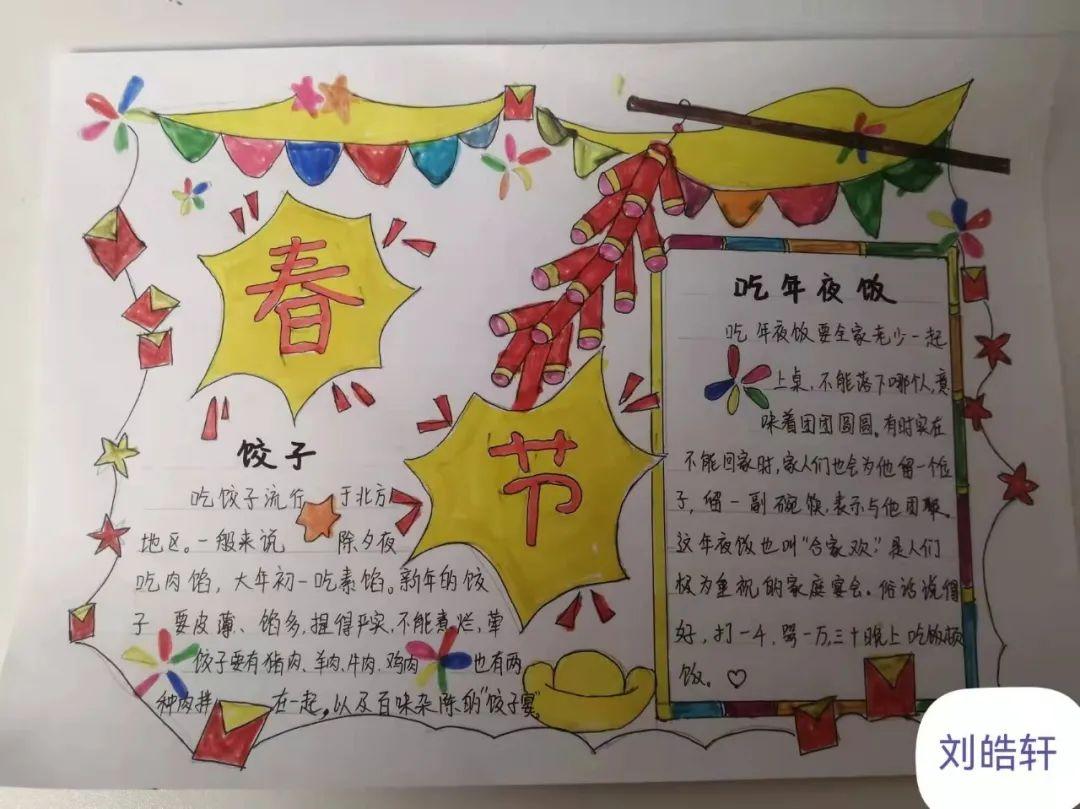 春
节
饺子
吃饺子流行于北方
地区。一般来说 除夕夜
吃肉馅，大年初一吃素馅。新年的饺
子 要皮薄、馅多，捏得严实，不能煮烂，荤
饺子要有猪肉、羊肉、牛肉、鸡肉 也有两
种肉拌 在一起，以及百味杂陈的“饺子宴”
吃年夜饭
吃年夜饭要全家老少一起
上桌，不能落下哪个人，意
味着团团圆圆。有时实在
不能回家时，家人们也会为他留一个位
子，留一副碗筷，表示与他团聚。
这年夜饭也叫“合家欢”是人们
极为重视的家庭宴会。俗话说得
好，打一千，骂一万，三十晚上吃饭顿
饭。♡
刘皓轩